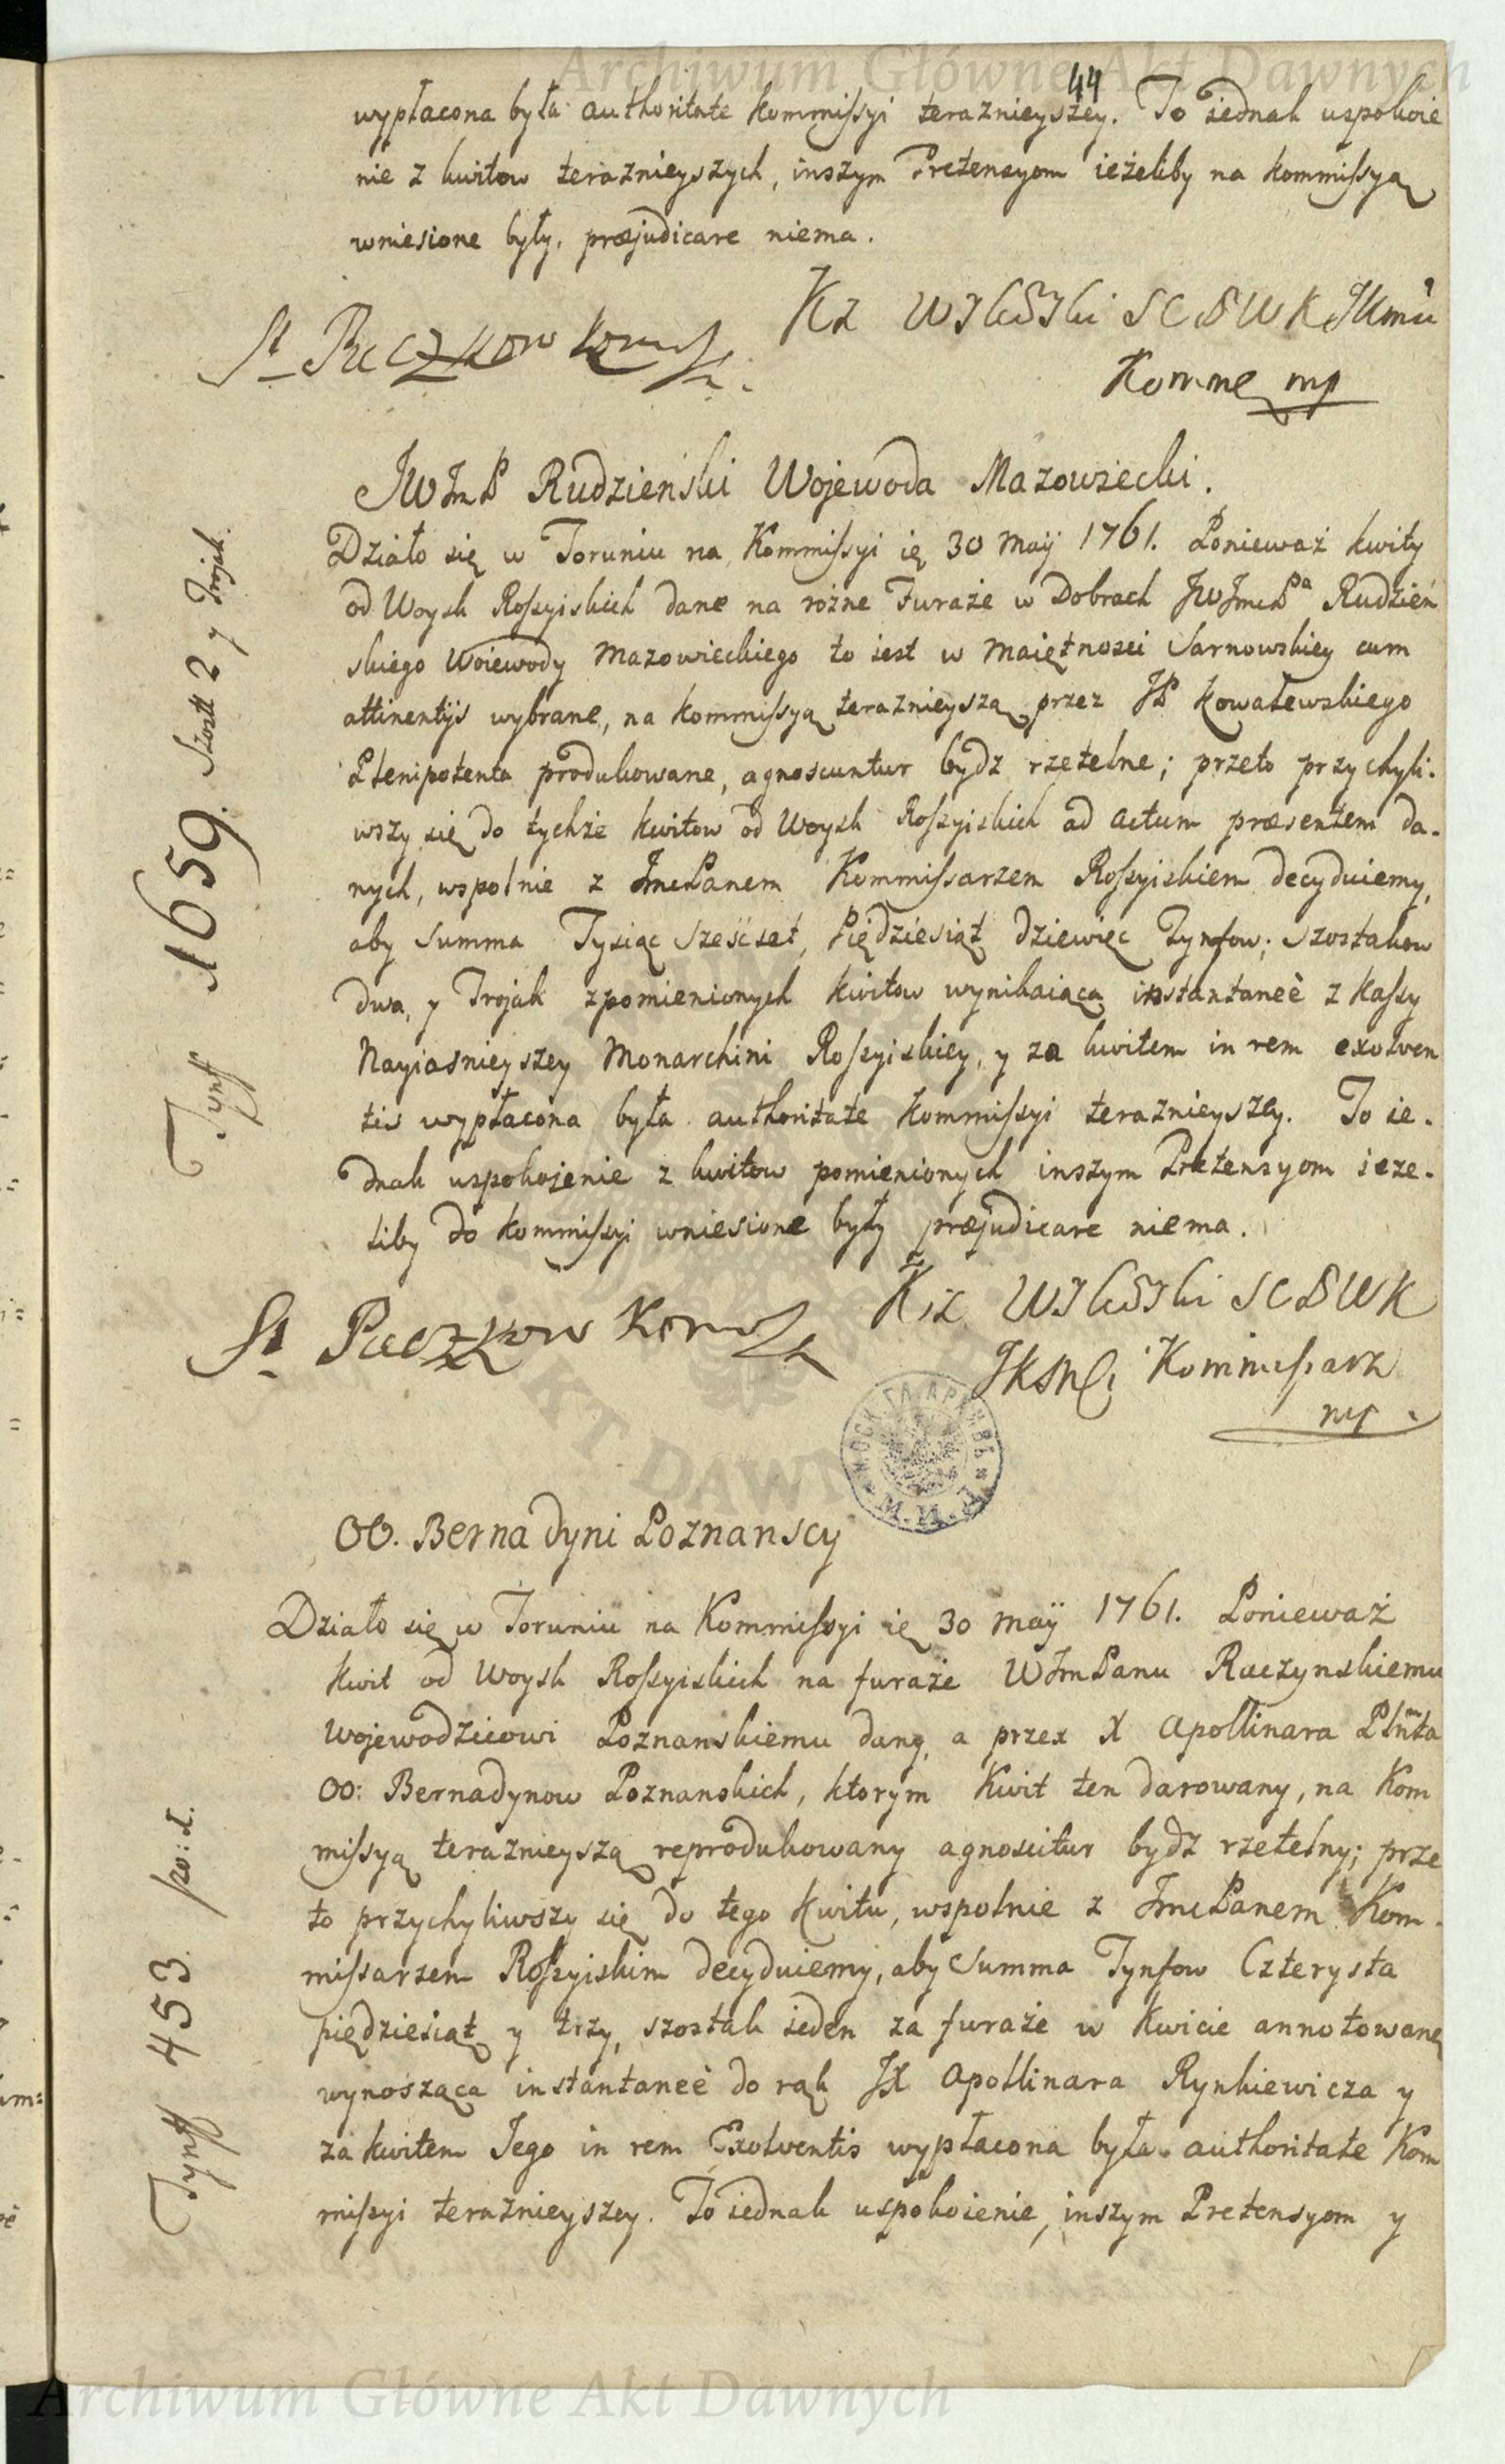 Archiwum Główne Akt Dawnych
44
wypłacona była authoritate kommissyi teraznieyszey. To iednak uspokoie
nie z kwitow teraznieyszych, inszym Pretensyom ieżeliby na kommissyą
wniesione były, præjudicare niema.
St Paczkow
Kommę mp
JWJmP Rudzieński Wojewoda Mazowiecki.
Działo się w Toruniu na Kommissyi ię 30 Maÿ 1761. Ponieważ kwity
od Woysk Rossyiskich dane na rożne Furaże w Dobrach JWJmcPa Rudzień
skiego Woiewody Mazowieckiego to iest w Maiętnosci Sarnowskiey cum
attinentÿs wybrane, na kommissyą teraznieyszą przez JP Kowalewskiego
Plenipotenta produkowane, agnoscuntur bydz rzetelne; przeto przychyli-
wszy się do tychże kwitow od Woysk Rossyiskich ad actum præsentem da-
nych, wspolnie z JmcPanem Kommissarzem Rossyiskiem decyduiemy,
aby Summa Tysiąc Sześcset, Piędziesiąt dziewięc Tynfow; Szostakow
dwa, y Trojak zpomienionych kwitow wynikaiąca instantaneè z Kassy
Nayiasnieyszey Monarchini Rossyiskiey, y za kwitem in rem exolven
tis wypłacona była authoritate kommissyi teraznieyszey. To ie-
dnak uspokojenie z kwitow pomienionych inszym Pretensyom ieze-
liby do kommissyi wniesione były præjudicare niema.
Tynff 1659. Szost 2 y Trojak.
St Paczkow
Kommissarz
mp.
OO. Bernadyni Poznanscy
Działo się w Toruniu na Kommissyi ię 30 Maÿ 1761. Ponieważ
kwit od Woysk Rossyiskich na furaże WJmPanu Raczynskiemu
Wojewodzicowi Poznanskiemu dany, a przez X Apollinara Plnta
OO: Bernadynow Poznanskich, ktorym Kwit ten darowany, na Kom
missyą teraznieyszą reprodukowany agnoscitur bydz rzetelny; prze
to przychyliwszy się do tego kwitu, wspolnie z JmcPanem Kom-
missarzem Rossyiskim decyduiemy, aby Summa Tynfow Czterysta
piędziesiąt y trzy, szostak ieden za furaże w kwicie annotowane
wynosząca instantaneè do rąk JX Apollinara Rynkiewicza y
za kwitem Jego in rem Exolventis wypłacona była authoritate Kom
missyi teraznieyszey. To iednak uspokoienie, inszym Pretensyom y
Tynff 453. po: 1.
Archiwum Główne Akt Dawnych